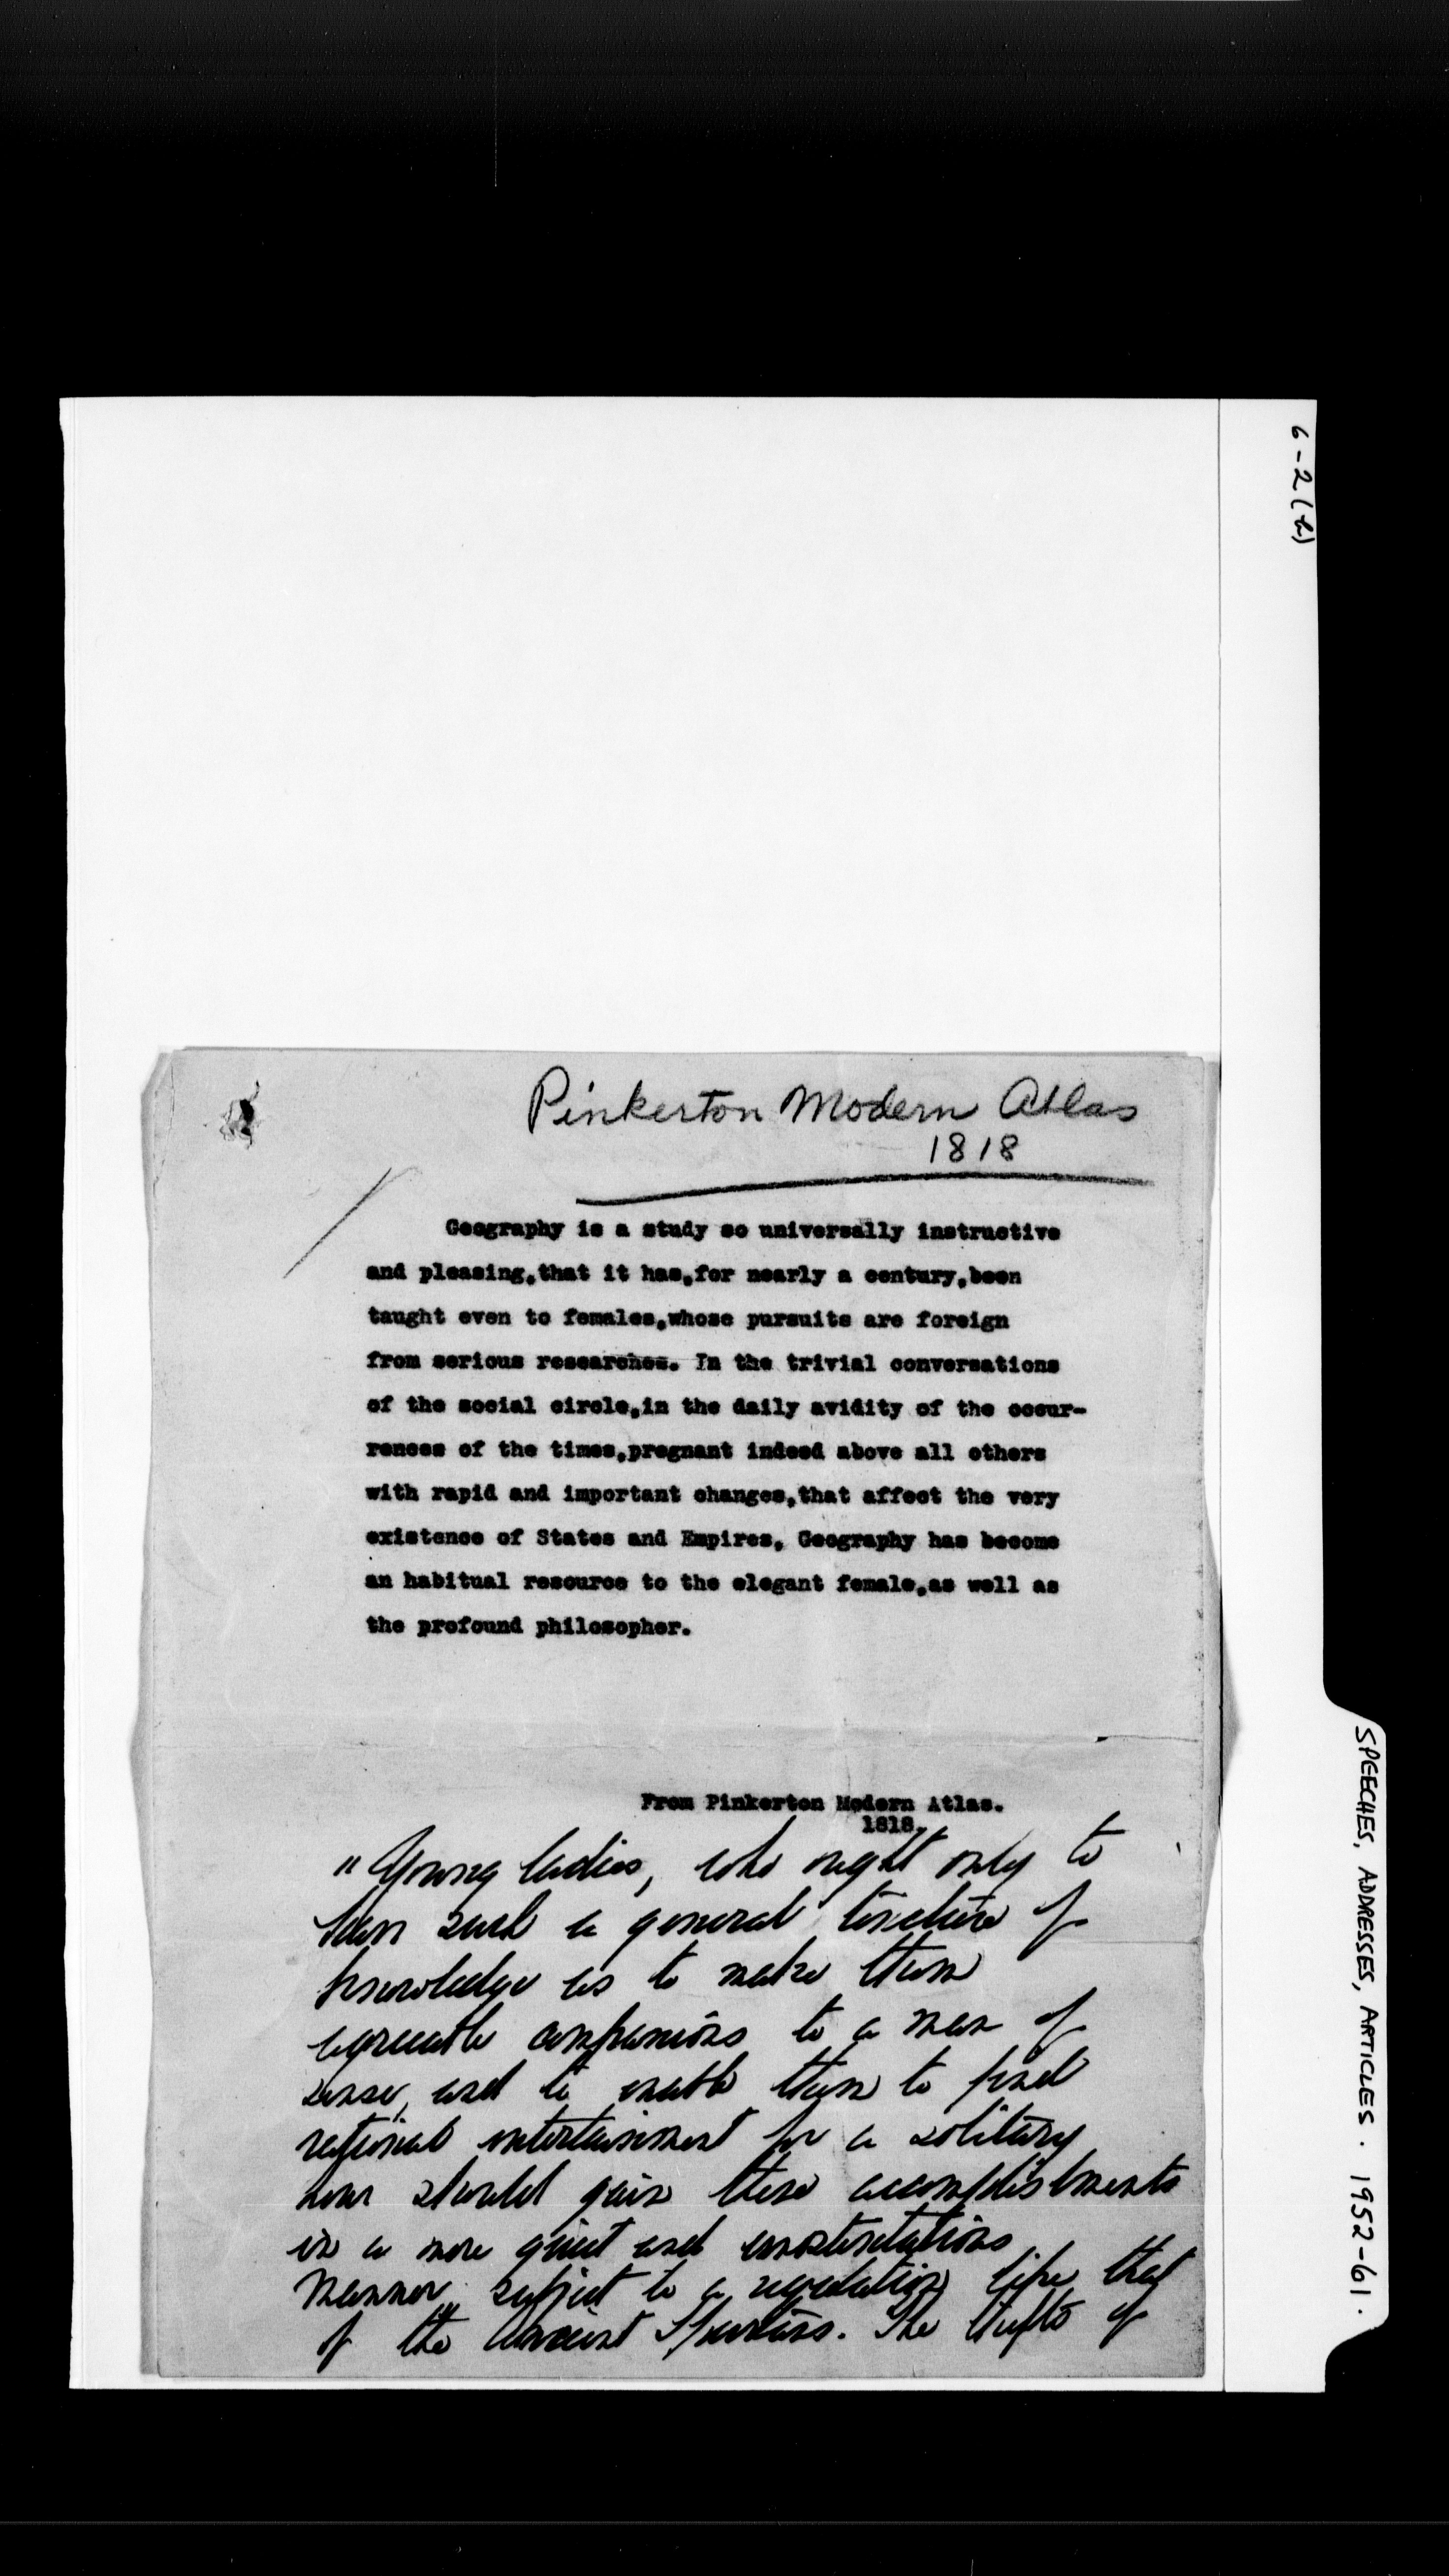 6-2(h)
Pinkerton Modern Atlas
1818
Geography is a study so universally instructive
and pleasing,that it has,for nearly a century,been
taught even to females,whose pursuits are foreign
from serious researches. In the trivial conversations
of the social circle,in the daily avidity of the occur-
rences of the times,pregnant indeed above all others
with rapid and important changes,that affect the very
existence of States and Empires, Geography has become
an habitual resource to the elegant female,as well as
the profound philosopher.
From Pinkerton Modern Atlas.
1818.
"Young ladies, who ought only to
have such a general tincture of
knowledge as to make them
agreeable companions to a man of
sense, and to enable them to find
rational entertainment for a solitary
hour should gain these accomplishments
in a more quiet and unostentatious
manner. subject to a regulation like that
of the Ancient Spartans. The thefts of
SPEECHES, ADDRESSES, ARTICLES. 1952-61.